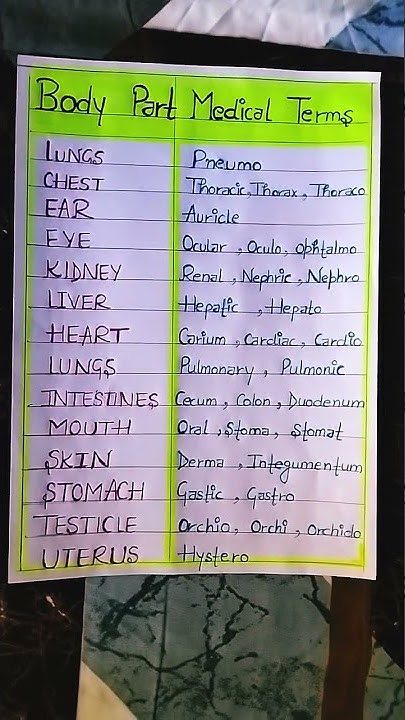 Body Part Medical Terms
LUNGS Pneumo
CHEST Thoracic, Thorax, Thoraco
EAR Auricle
EYE Ocular, Oculo, Ophtalmo
KIDNEY Renal, Nephric, Nephro
LIVER Hepatic, Hepato
HEART Carium, Cardiac, Cardio
LUNGS Pulmonary, Pulmonic
INTESTINES Cecum, Colon, Duodenum
MOUTH Oral, Stoma, Stomat
SKIN Derma, Integumentum
STOMACH Gastic, Gastro
TESTICLE Orchio, Orchi, Orchido
UTERUS Hystero